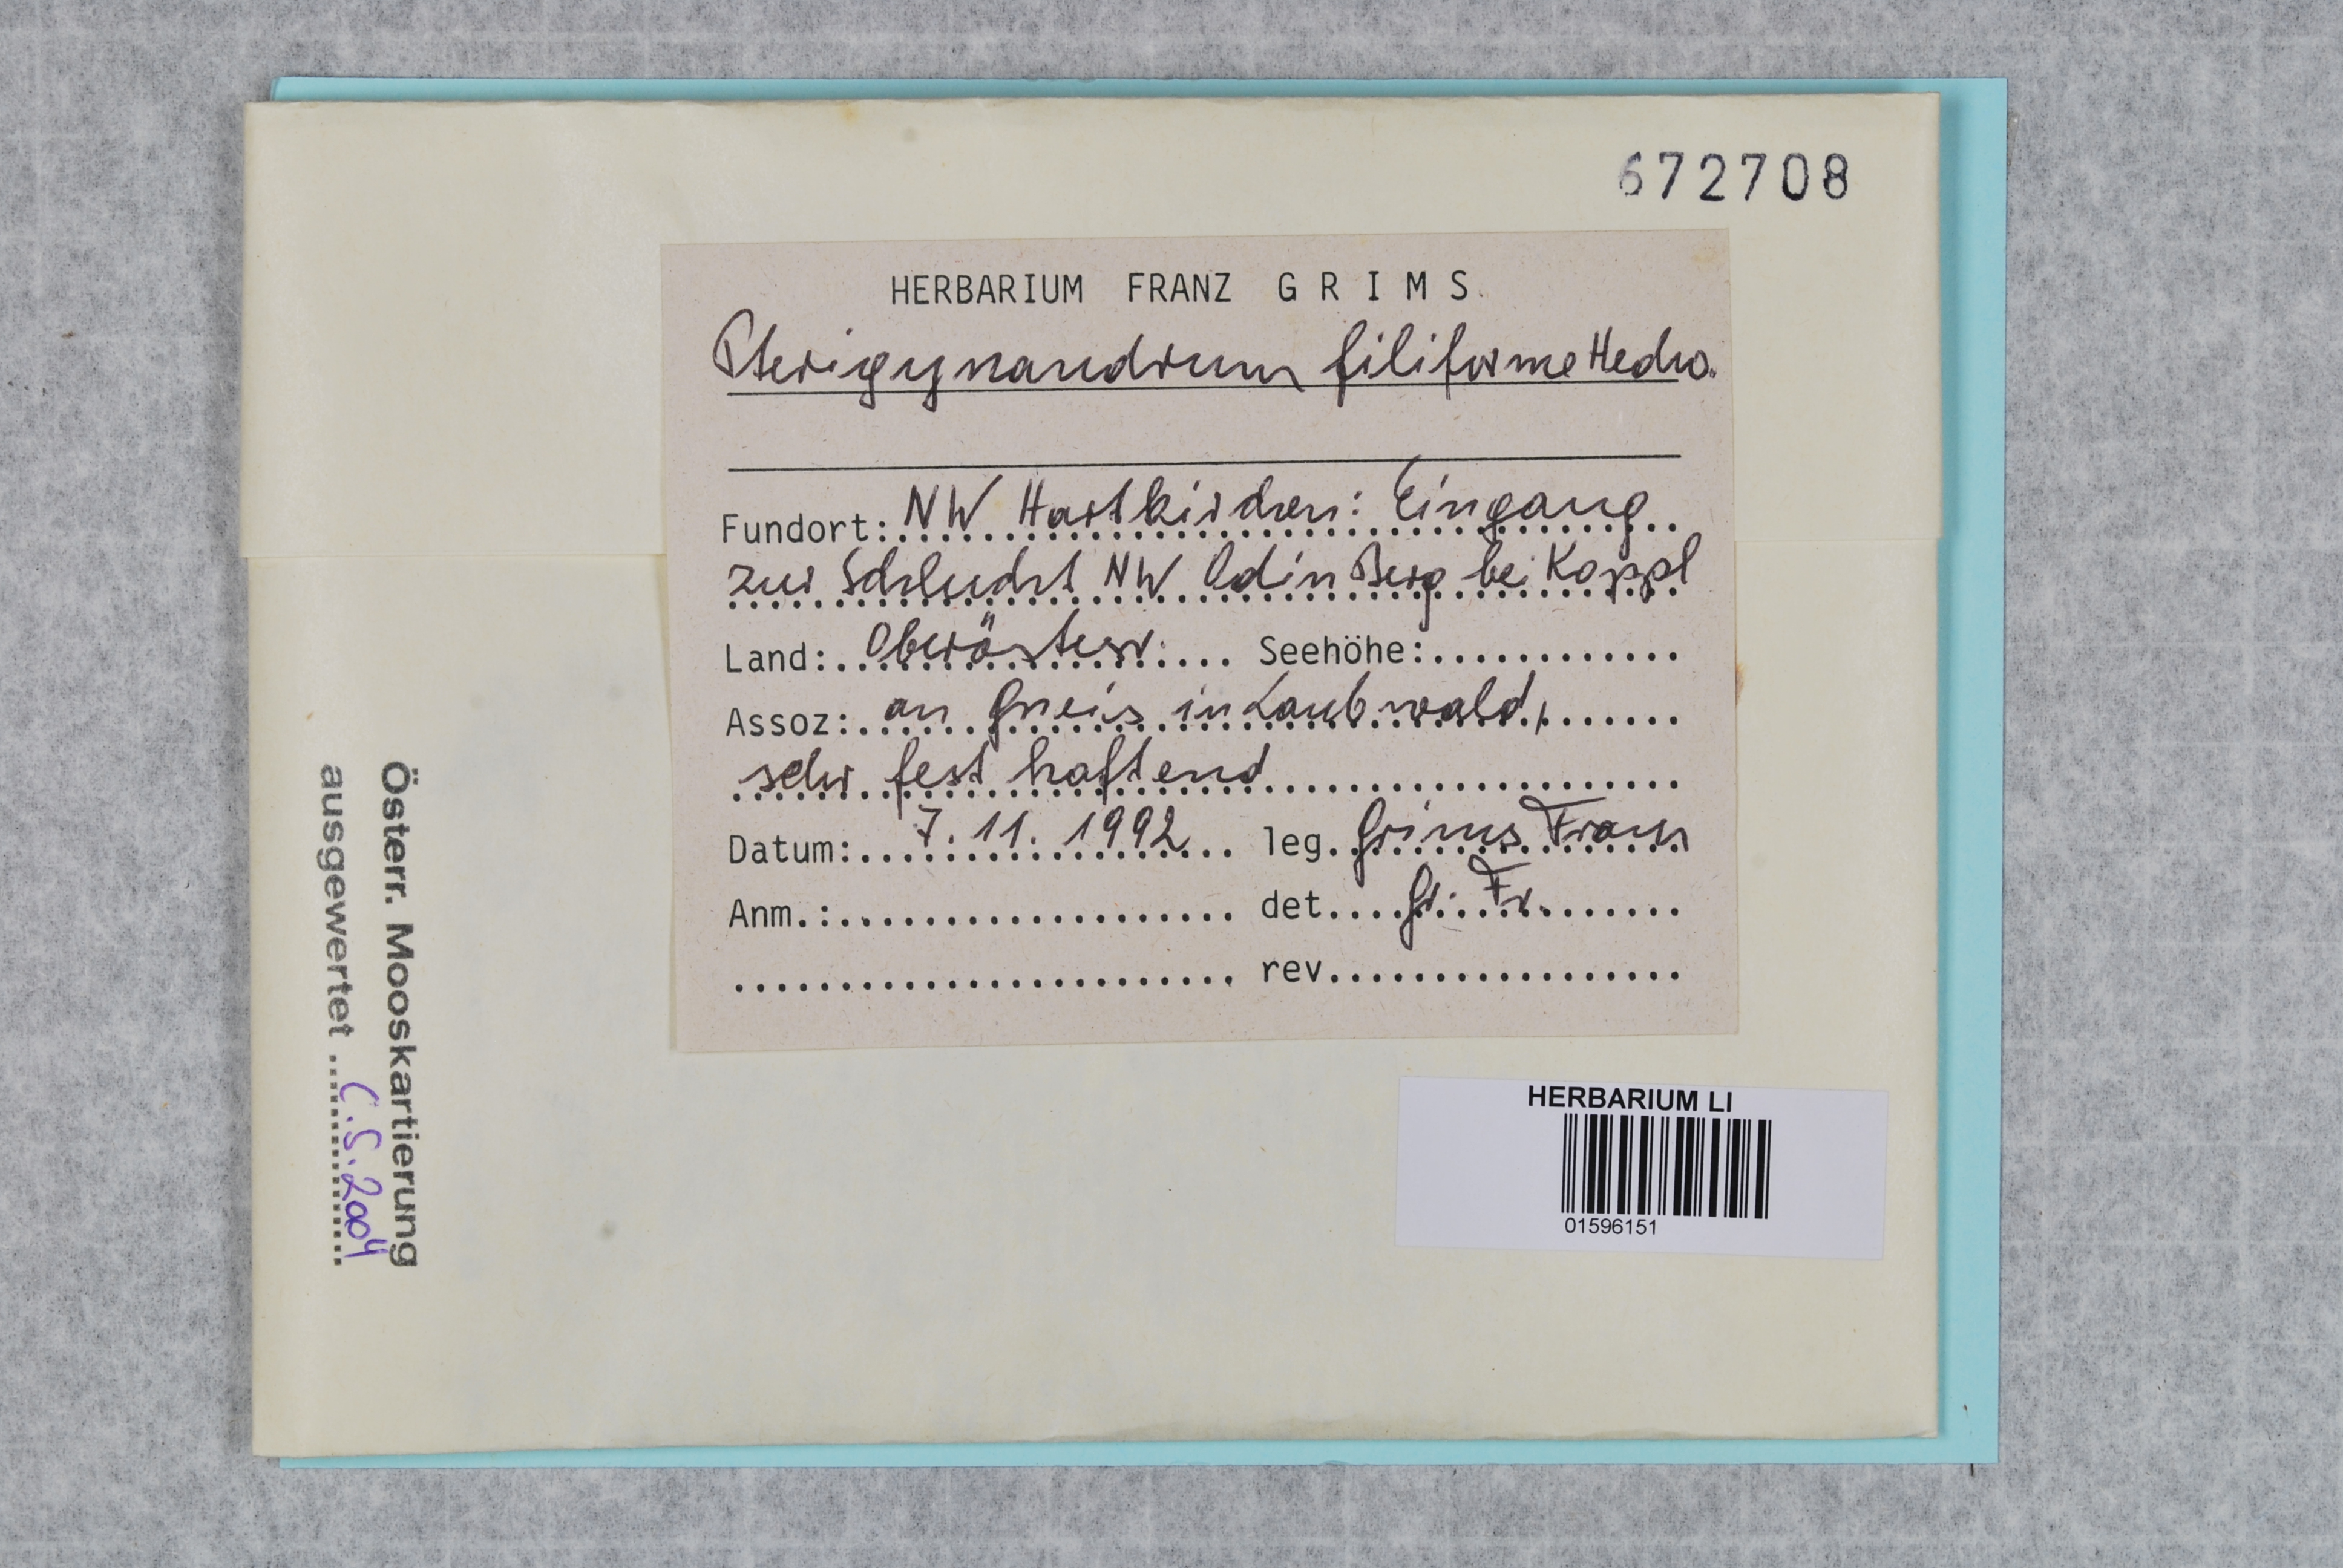 672708
HERBARIUM FRANZ GRIMS
Pterigynandrum filiforme Hedw.
Fundort: NW Hartkirchen: Eingang
zur Schlucht NW Berg bei Koppl
Land: Oberösterr. Seehöhe:
Assoz: an Gneis in Laubwald,
sehr fest haftend
Datum: 7.11.1992 leg. Grims Franz
Anm.: det. Gr. Fr.
rev.
Österr. Mooskartierung
ausgewertet C.S. 2004
HERBARIUM LI
01596151